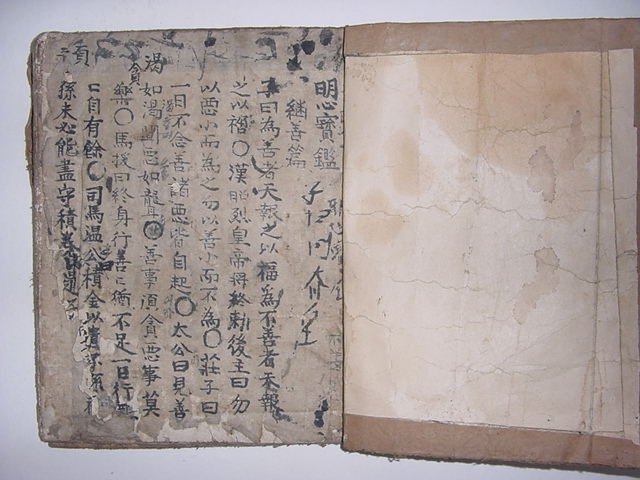 明心寶鑑
継善篇
子曰為善者天報之以福為不善者天報
之以禍〇漢昭烈皇帝將終勅後主曰勿
以惡小而為之勿以善小而不為〇莊子曰
一日不念善諸惡皆自起〇太公曰見善
渴
如渴聞惡如聾〇善事須貪惡事莫
貪
樂〇馬援曰終身行善〻猶不足一日行惡
自有餘〇司馬温公積金以遺子孫
孫未必能盡守積